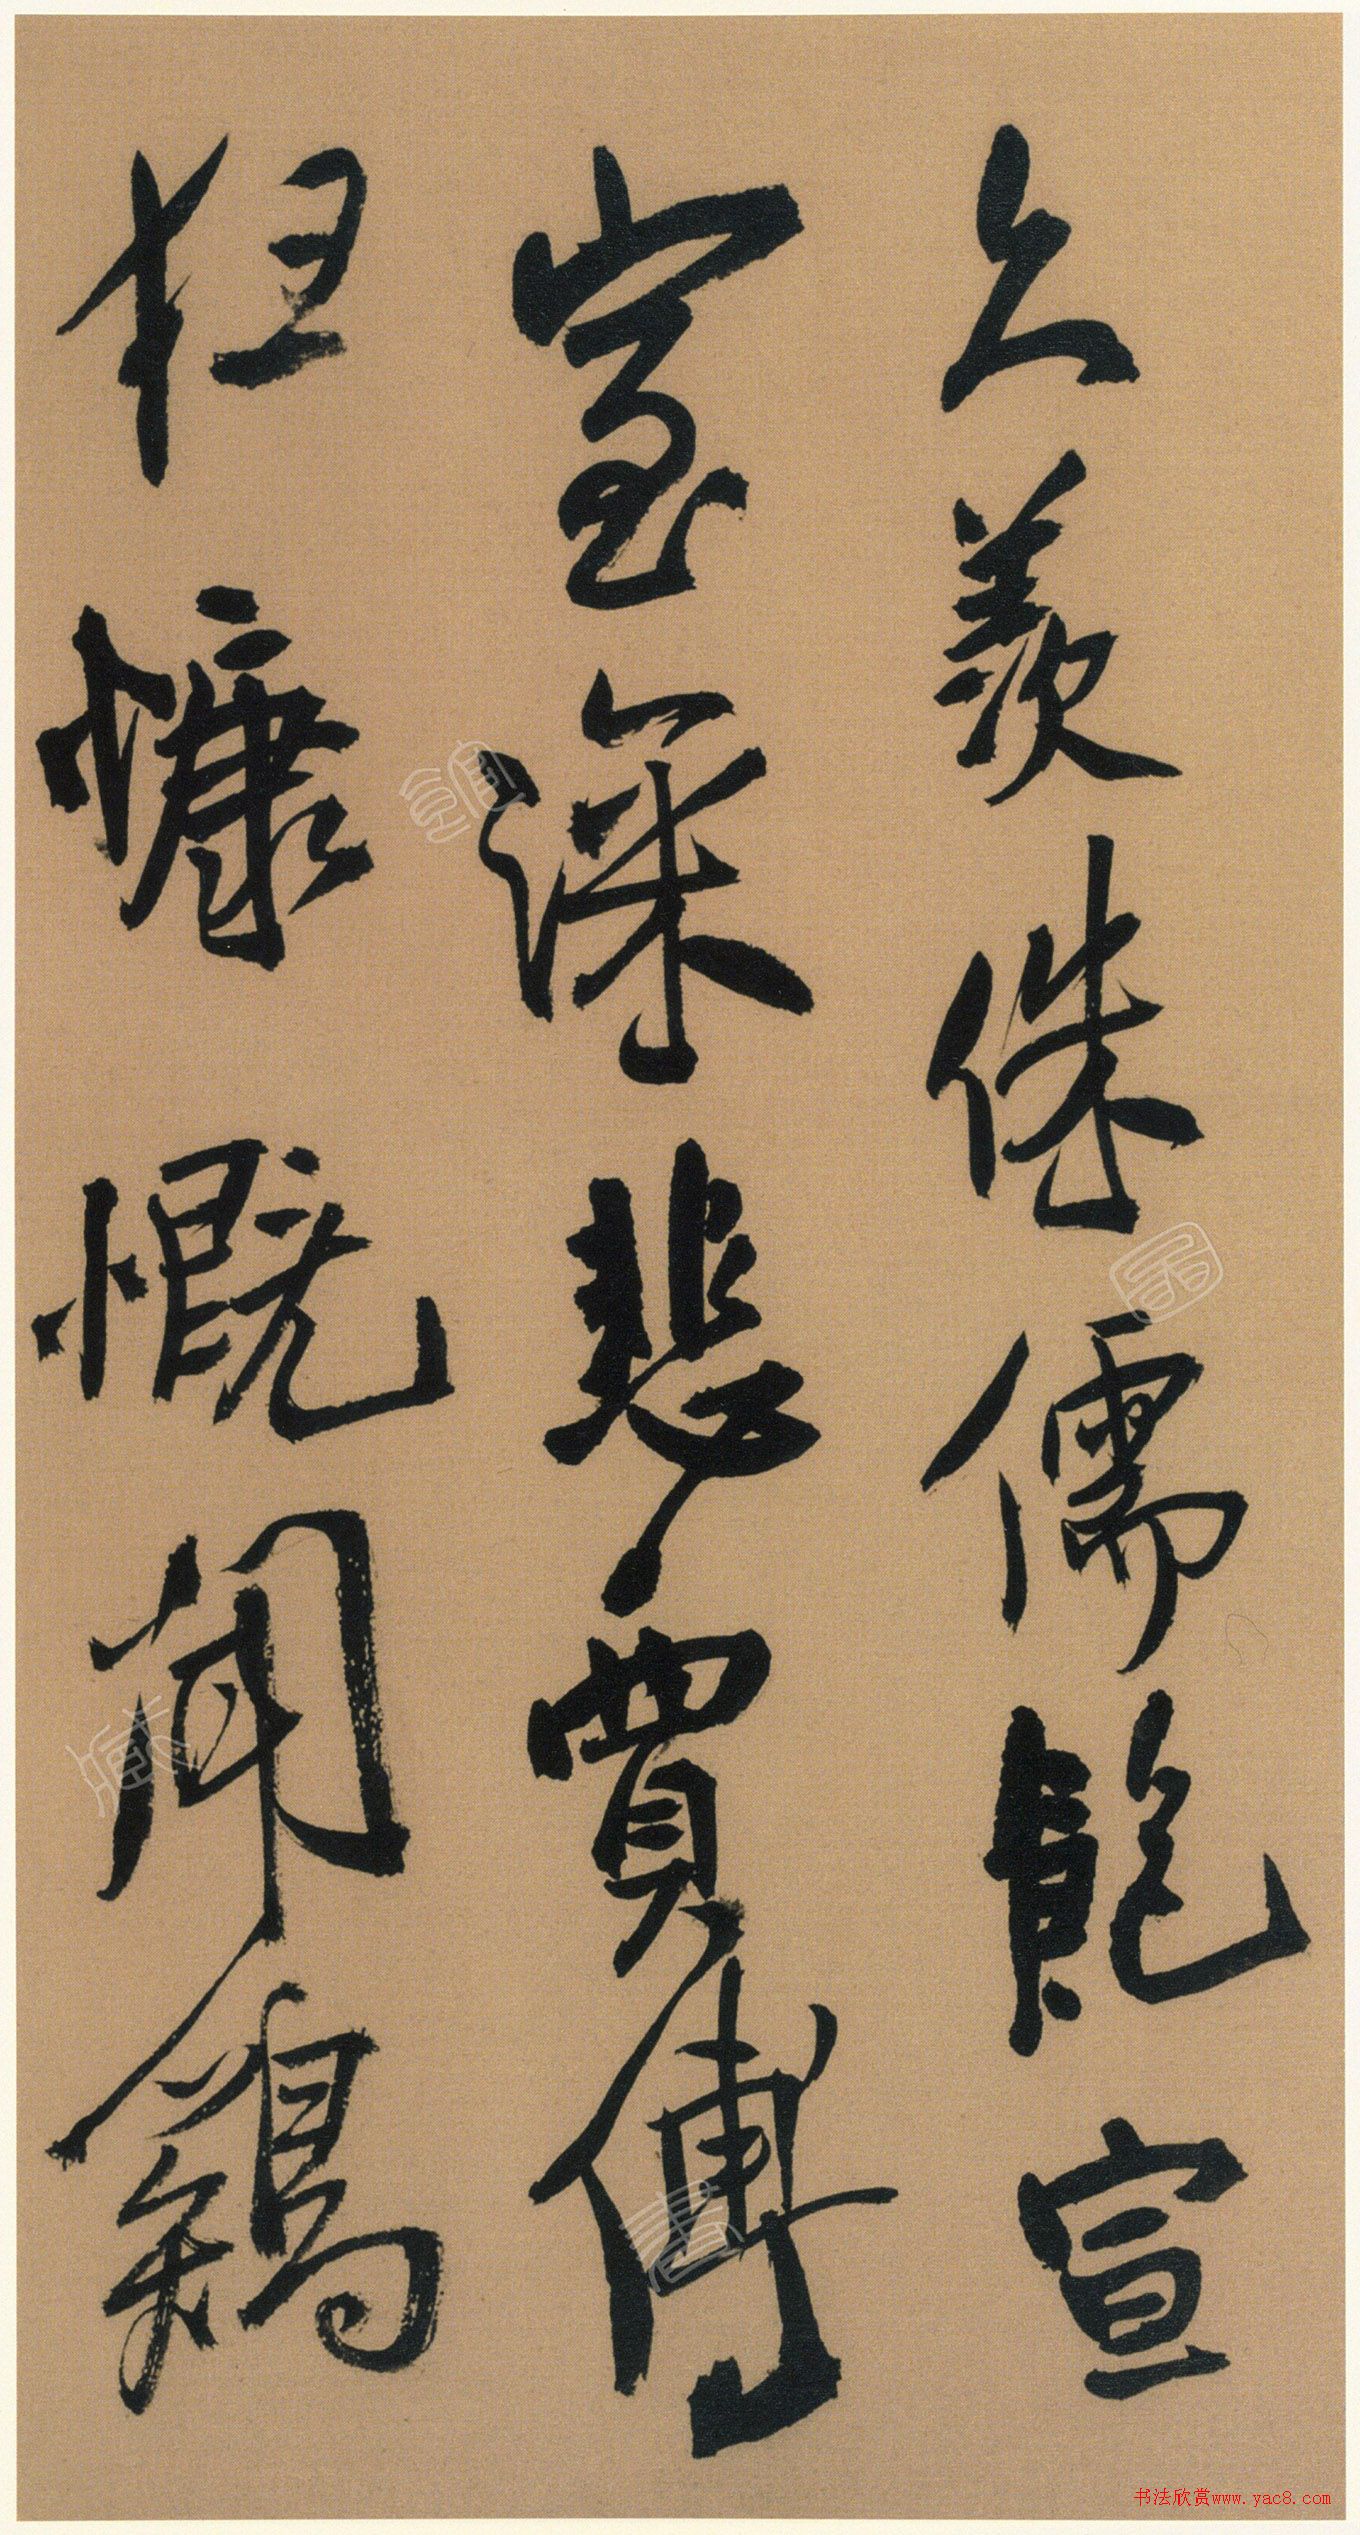 久羡侏儒飽宣
室深悲賈傅
狂慷慨聞鷄
书法欣赏www.yac8.com